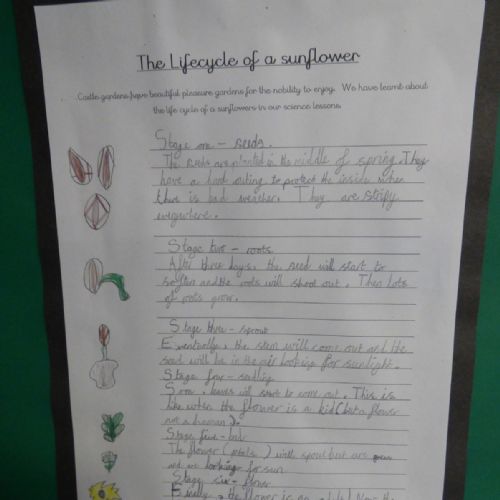 The Lifecycle of a sunflower
Castle gardens have beautiful pleasure gardens for the nobility to enjoy. We have learnt about
the life cycle of a sunflowers in our science lessons.
Stage one - seeds.
The seeds are planted in the middle of spring. They
have a hard outing to protect the inside when
there is bad weather. They are stripy
everywhere.
Stage two - roots
After three days, the seed will start to
soften and the roots will shoot out. Then lots
of roots grow.
Stage three - sprout
Eventually, the stem will come out and the
seed will be in the air looking for sunlight.
Stage four - seedling
Soon, leaves will start to come out. This is
like when the flower is a kid (but a flower
not a human).
Stage five - bud
The flower (petals) will sprout but are
and are looking for sun
Stage six - flower
the flower is an adult! Now the